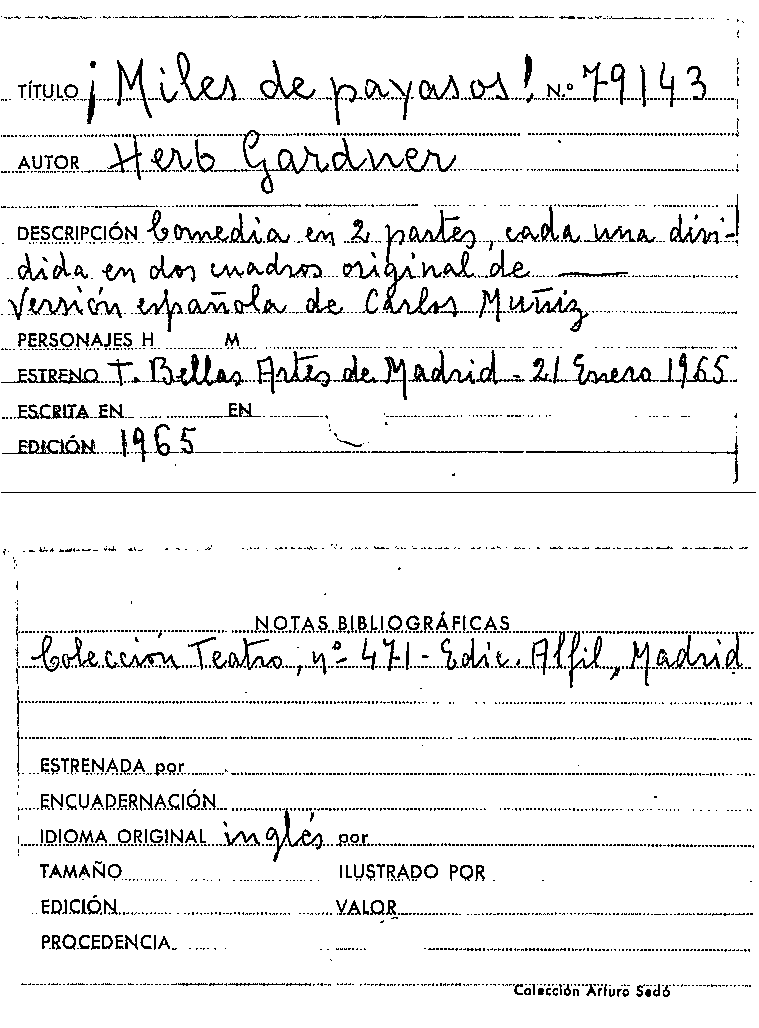 TÍTULO ¡Miles de payasos! N.º 79143
AUTOR Herb Gardner
DESCRIPCIÓN Comedia en 2 partes, cada una divi-
dida en dos cuadros original de ——
Versión española de Carlos Muñiz
PERSONAJES H M
ESTRENO T. Bellas Artes de Madrid - 21 Enero 1965
ESCRITA EN EN
EDICIÓN 1965
NOTAS BIBLIOGRÁFICAS
Colección Teatro, nº 471 - Edic. Alfil, Madrid
ESTRENADA por
ENCUADERNACIÓN
IDIOMA ORIGINAL inglés por
TAMAÑO ILUSTRADO POR
EDICIÓN VALOR
PROCEDENCIA
Colección Arturo Sedó